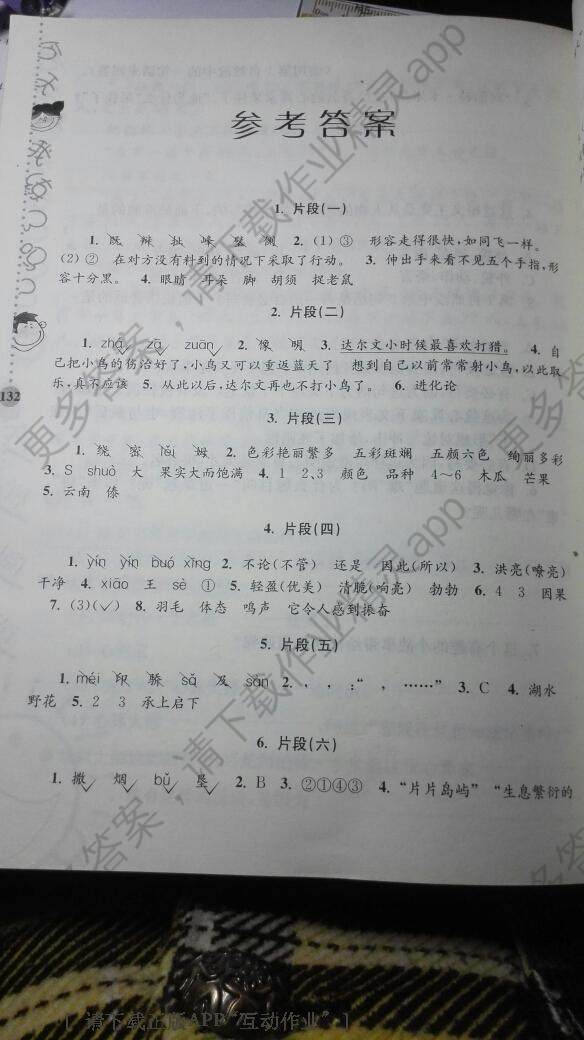 参考答案
1. 片段(一)
1. 既 辫 扯 嵘 2. (1) ③ 形容走得很快,如同飞一样。
(2) ② 在对方没有料到的情况下采取了行动。 3. 伸出手来看不见五个手指,形
容十分黑。 4. 眼睛 耳朵 脚 胡须 捉老鼠
2. 片段(二)
1. zhá zā zuān 2. 像 明 3. 达尔文小时候最喜欢打猎。 4. 自
己把小鸟的伤治好了,小鸟又可以重返蓝天了 想到自己以前常常射小鸟,以此取
乐,真不应该 5. 从此以后,达尔文再也不打小鸟了。 6. 进化论
132
3. 片段(三)
1. 绕 密 姆 2. 色彩艳丽繁多 五彩斑斓 五颜六色 绚丽多彩
3. S shuò 大 果实大而饱满 4. 1 2、3 颜色 品种 4～6 木瓜 芒果
5. 云南 傣
4. 片段(四)
1. yín yín buó xīng 2. 不论(不管) 还是 因此(所以) 3. 洪亮(嘹亮)
干净 4. xiāo 王 sè ① 5. 轻盈(优美) 清脆(响亮) 勃勃 6. 4 3 因果
7. (3)(✓) 8. 羽毛 体态 鸣声 它令人感到振奋
5. 片段(五)
1. méi 印 骄 sǎ 及 sǎn 2. , , :“ , ……” 3. C 4. 湖水
野花 5. 2 3 承上启下
6. 片段(六)
1. 撒 烟 bǔ 垦 2. B 3. ②①④③ 4. “片片岛屿” “生息繁衍的
更多答案,请下载作业精灵app
更多答案,请下载作业精灵app
[ 请下载正版APP“互动作业” ]